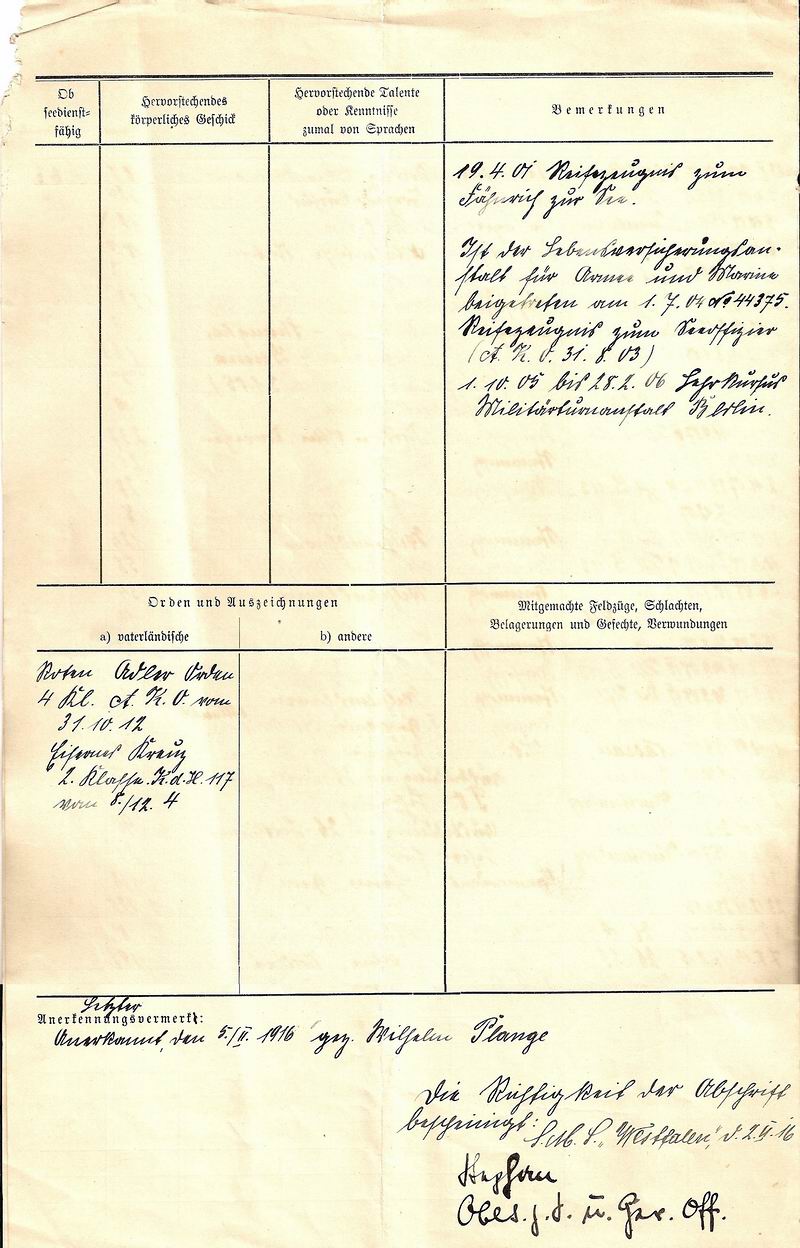 Ob
seedienst-
fähig
Hervorstechendes
körperliches Geschick
Hervorstechende Talente
oder Kenntnisse
zumal von Sprachen
Bemerkungen
19. 4. 01 Reifezeugnis zum
Fähnrich zur See.
Ist der Lebensversicherungsan-
stalt für Armee und Marine
beigetreten am 1. 7. 04 No 44375.
Reifezeugnis zum Seeoffizier
(A. K. O. 31. 8. 03)
1. 10. 05 bis 28. 2. 06 Lehrkursus
Militärturnanstalt Berlin.
Orden und Auszeichnungen
a) vaterländische
b) andere
Mitgemachte Feldzüge, Schlachten,
Belagerungen und Gefechte, Verwundungen
Roten Adler Orden
4 Kl. A. K. O. vom
31. 10. 12
Eisernes Kreuz
2. Klasse. K. d. H. 117
vom 8./12. 4
Letzter
Anerkennungsvermerk:
Anerkannt, den 5./II. 1916 gez. Wilhelm Plange
Die Richtigkeit der Abschrift
bescheinigt:
S. M. S. "Westfalen", d. 2. 16
Stephan
z. S. u. Ger. Off.